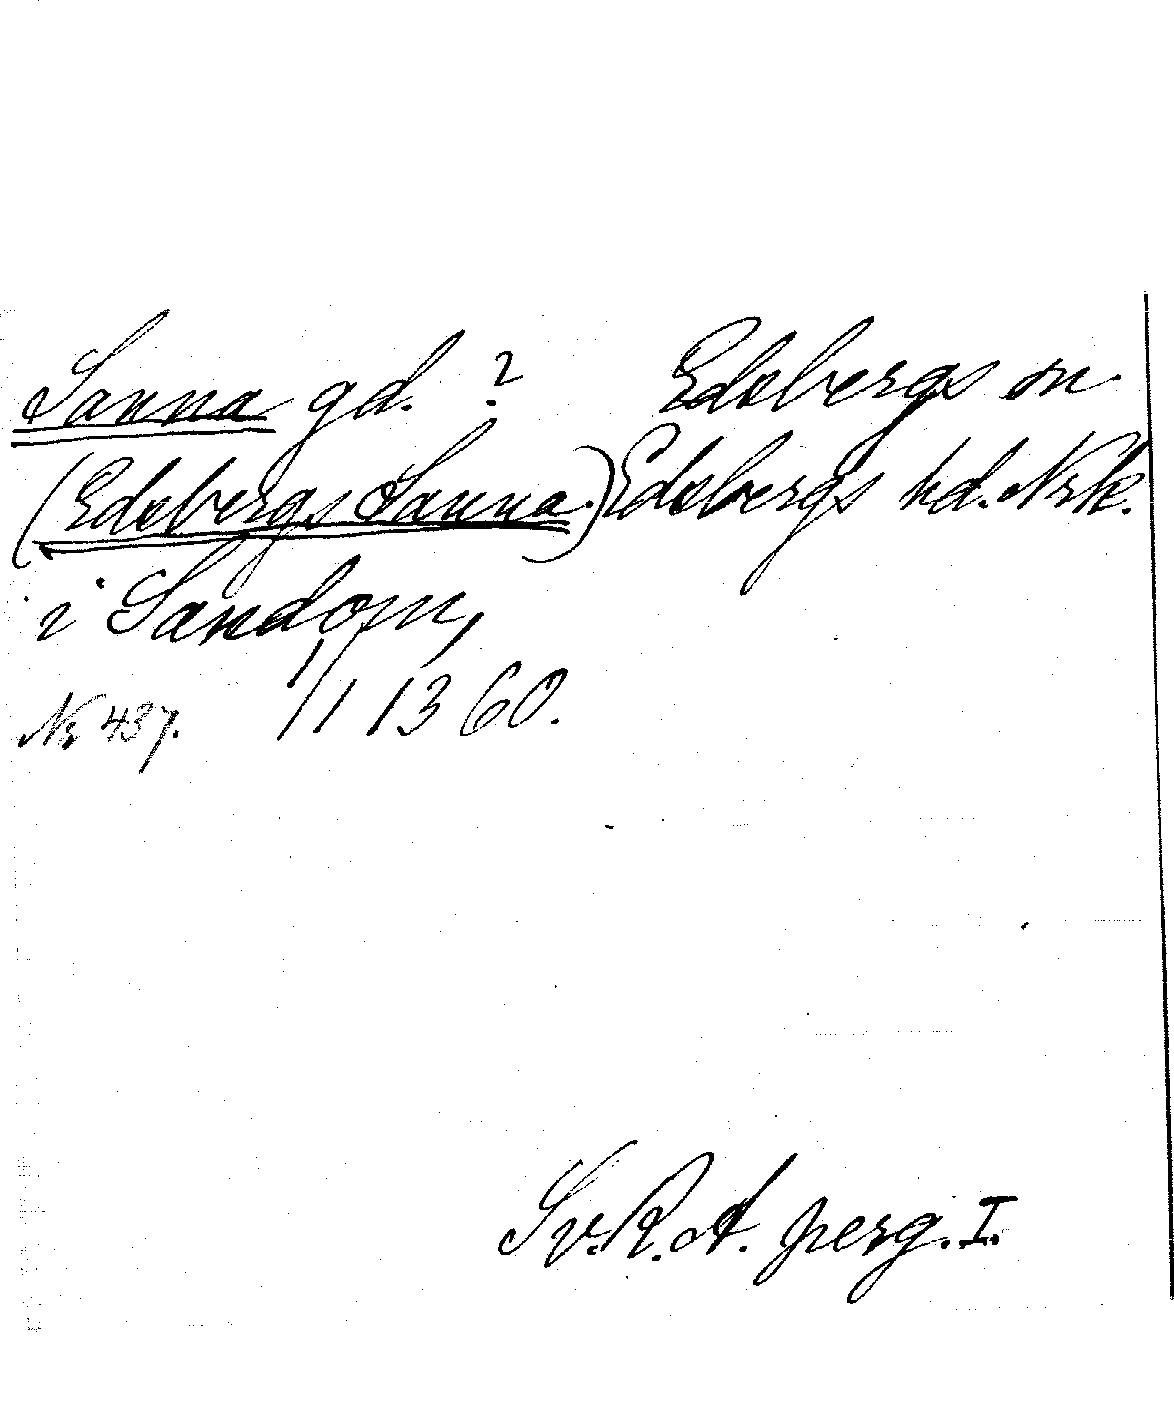 Sanna gd. ? Edsbergs sn.
(Edsbergs Sanna.) Edsbergs hd. Nrk.
i Sandom,
Nr 437. 1/1 1360.
Sv. R. A. perg. I.